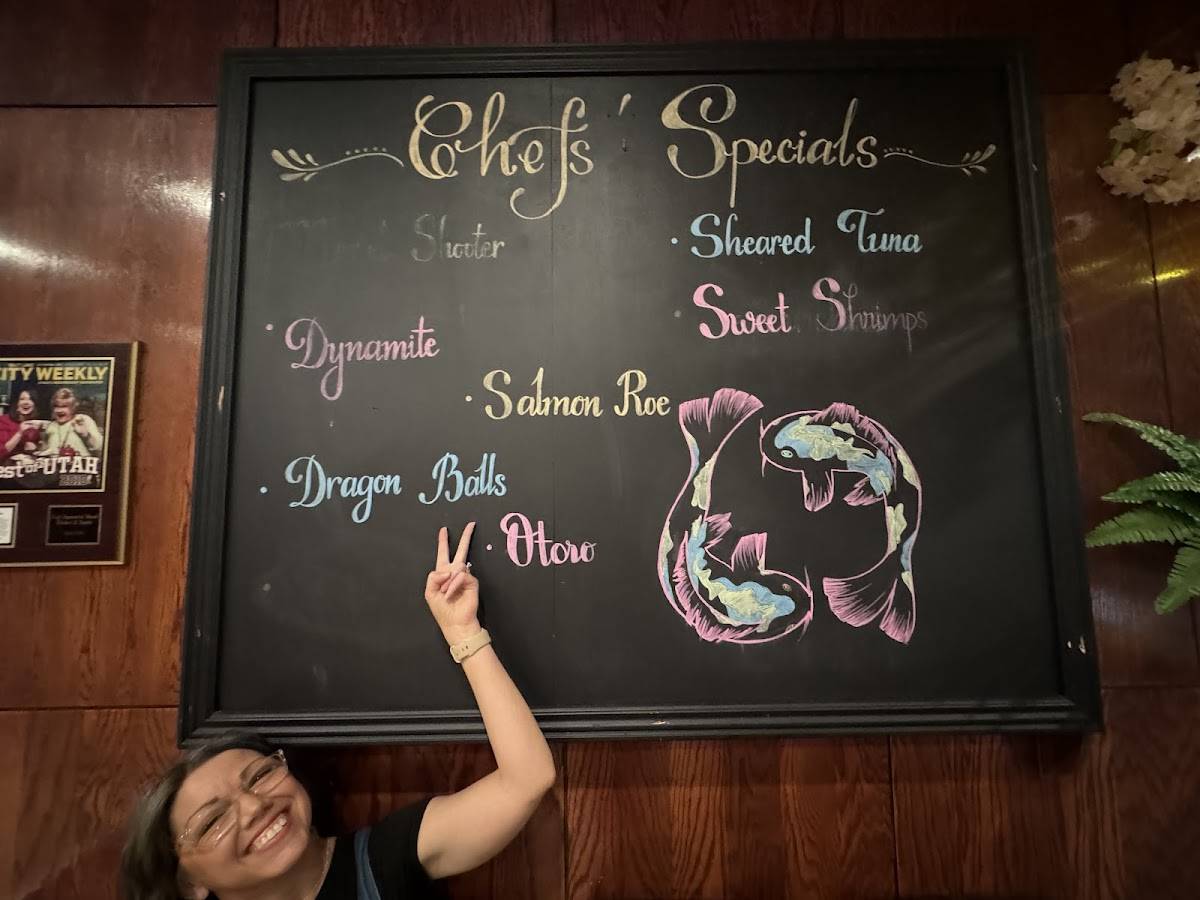 Chefs' Specials
Shooter
· Sheared Tuna
· Sweet Shrimps
· Dynamite
· Salmon Roe
· Dragon Balls
· Otoro
CITY WEEKLY
Best of UTAH